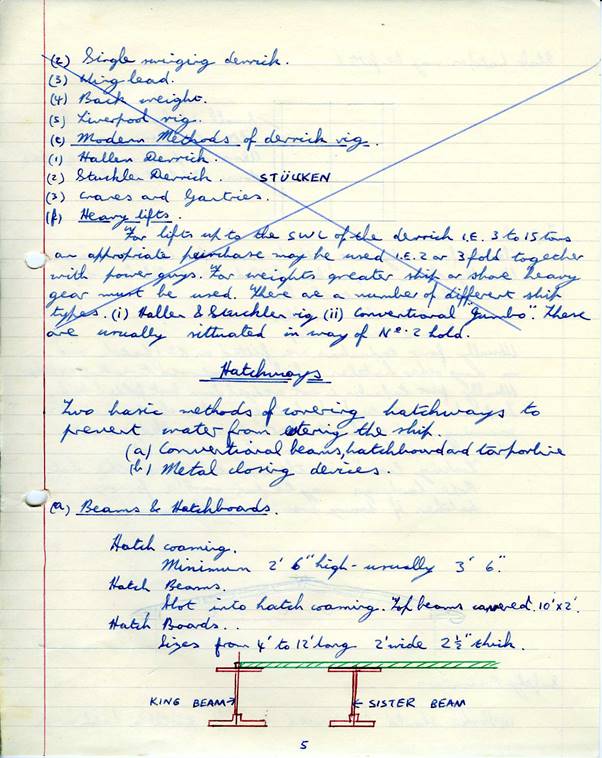 (2) Single swinging derrick.
(3) Wing lead.
(4) Back weight.
(5) Liverpool rig.
(e) Modern Methods of derrick rig.
(1) Hallen Derrick.
(2) Stuckler Derrick. STÜLKEN
(3) Cranes and Gantries.
(f) Heavy lifts.
For lifts up to the SWL of the derrick I.E. 3 to 15 tons
an appropriate purchase may be used I.E. 2 or 3 fold together
with power guys. For weights greater ship or shore heavy
gear must be used. There are a number of different ship
types. (i) Hallen & Stuckler rig (ii) Conventional "Jumbo". These
are usually situated in way of No. 2 hold.
Hatchways
Two basic methods of covering hatchways to
prevent water from entering the ship.
(a) Conventional beams, hatchboard and tarpauline
(b) Metal closing devices.
(a) Beams & Hatchboards.
Hatch coaming.
Minimum 2' 6" high - usually 3' 6".
Hatch Beams.
Slot into hatch coaming. Top beams covered. 10'x2'.
Hatch Boards..
Sizes from 4' to 12' long 2' wide 2½" thick.
KING BEAM→ ←SISTER BEAM
5